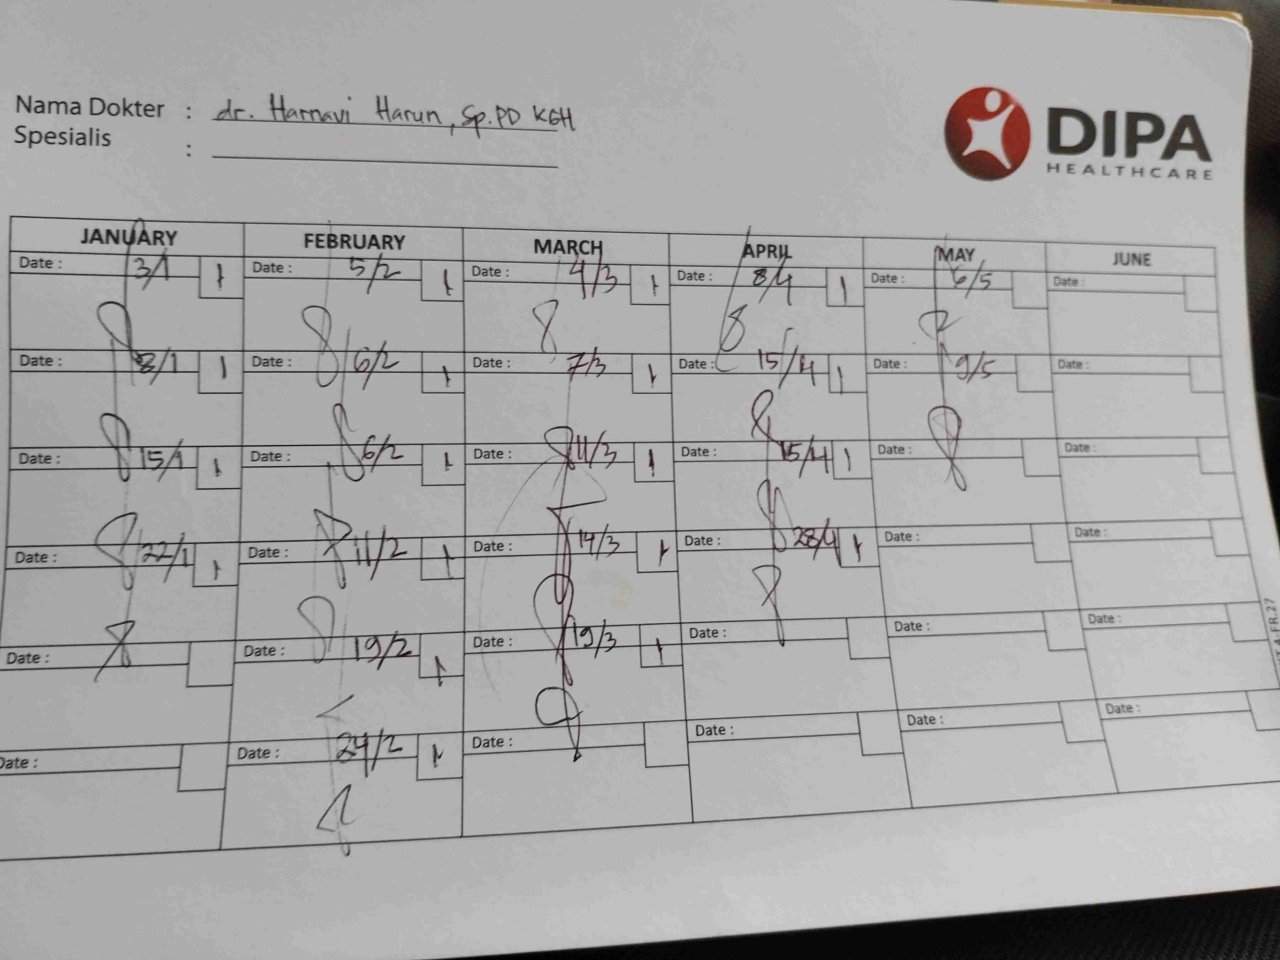 Nama Dokter : dr. Harnavi Harun, Sp.PD KGH
Spesialis :
DIPA
HEALTHCARE
JANUARY FEBRUARY MARCH APRIL MAY JUNE
Date : 3/1 1 Date : 5/2 1 Date : 4/3 1 Date : 8/4 1 Date : 6/5 Date :
Date : 8/1 1 Date : 6/2 1 Date : 7/3 1 Date : 15/4 1 Date : 9/5 Date :
Date : 15/1 1 Date : 6/2 1 Date : 11/3 1 Date : 15/4 1 Date : Date :
Date : 22/1 1 Date : 11/2 1 Date : 14/3 1 Date : 28/4 1 Date : Date :
Date : Date : 19/2 1 Date : 19/3 1 Date : Date : Date :
Date : Date : 24/2 1 Date : Date : Date : Date :